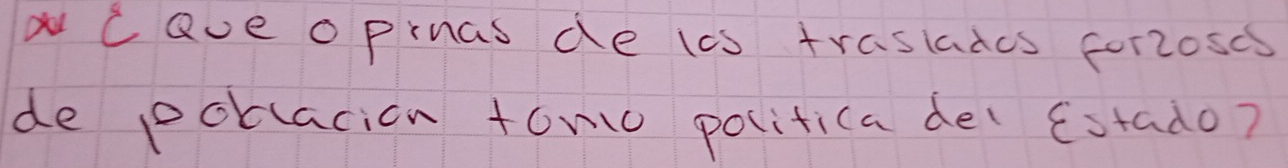 ¿Que opinas de los traslados forzosos
de poblacion tomo politica del Estado?